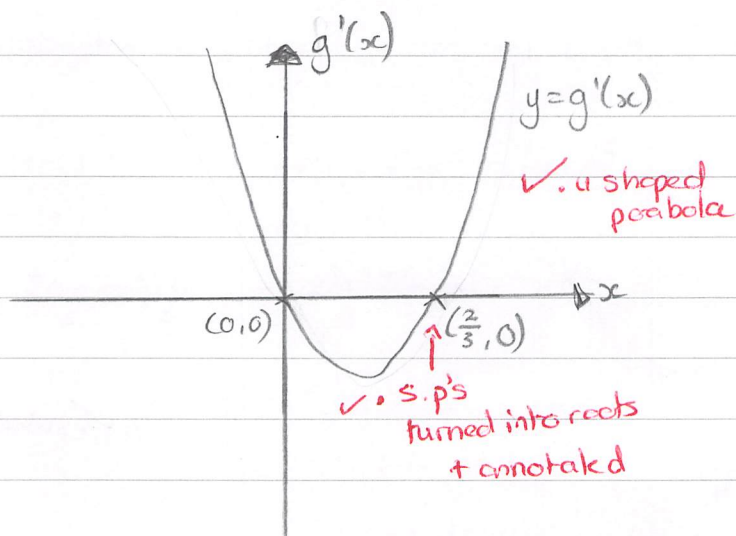 g'(x)
y=g'(x)
✓ • u shaped
parabola
x
(0,0)
(2/3, 0)
✓ • s.p's
turned into roots
+ annotated